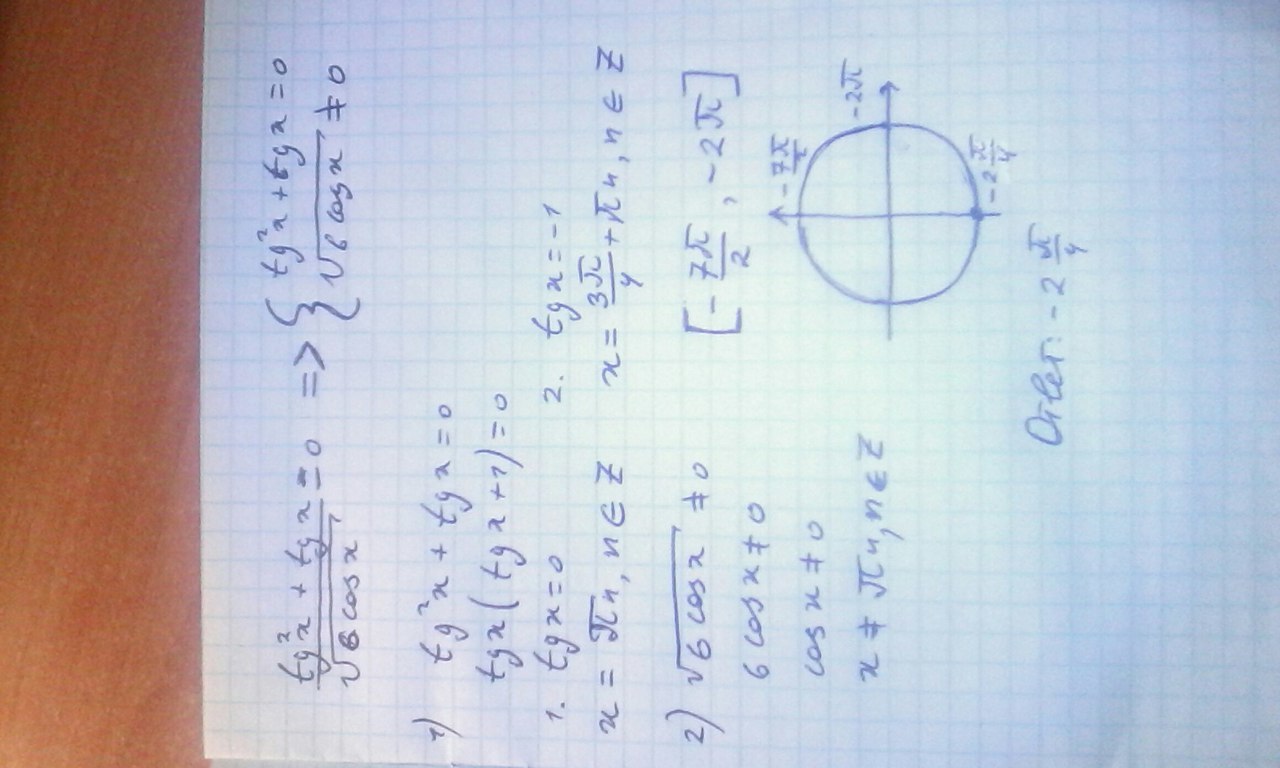 (tg²x + tgx)/√(6cosx) = 0 => { tg²x + tgx = 0
{ √(6cosx) ≠ 0
1) tg²x + tgx = 0
tgx(tgx+1) = 0
1. tgx = 0 2. tgx = -1
x = πn, n ∈ Z x = 3π/4 + πn, n ∈ Z
2) √(6cosx) ≠ 0 [-7π/2, -2π]
6cosx ≠ 0
cosx ≠ 0
x ≠ πn, n ∈ Z
-2π
-2π/4
Ответ: -2π/4